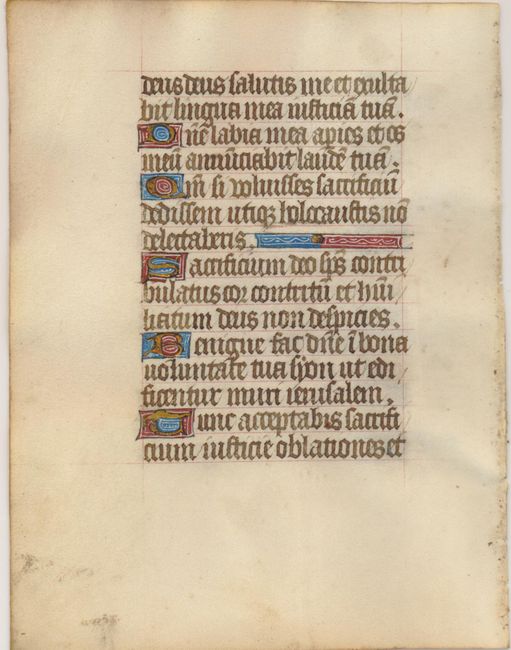 deus deus salutis me et exulta
bit lingua mea iusticiā tuā.
Dn̄e labia mea apies et os
meū annūciabit laudē tuā.
Qm̄ si voluisses sacrificiū
dedissem utiqꝫ holocaustis nō
delectaberis.
Sacrificium deo sp̄s contri
bulatus cor contritū et hūi
liatum deus non despicies.
Benigne fac dn̄e ī bona
uoluntate tua syon ut edi
ficentur muri ierusalem.
Tunc acceptabis sacrifi
cium iusticie oblationes et